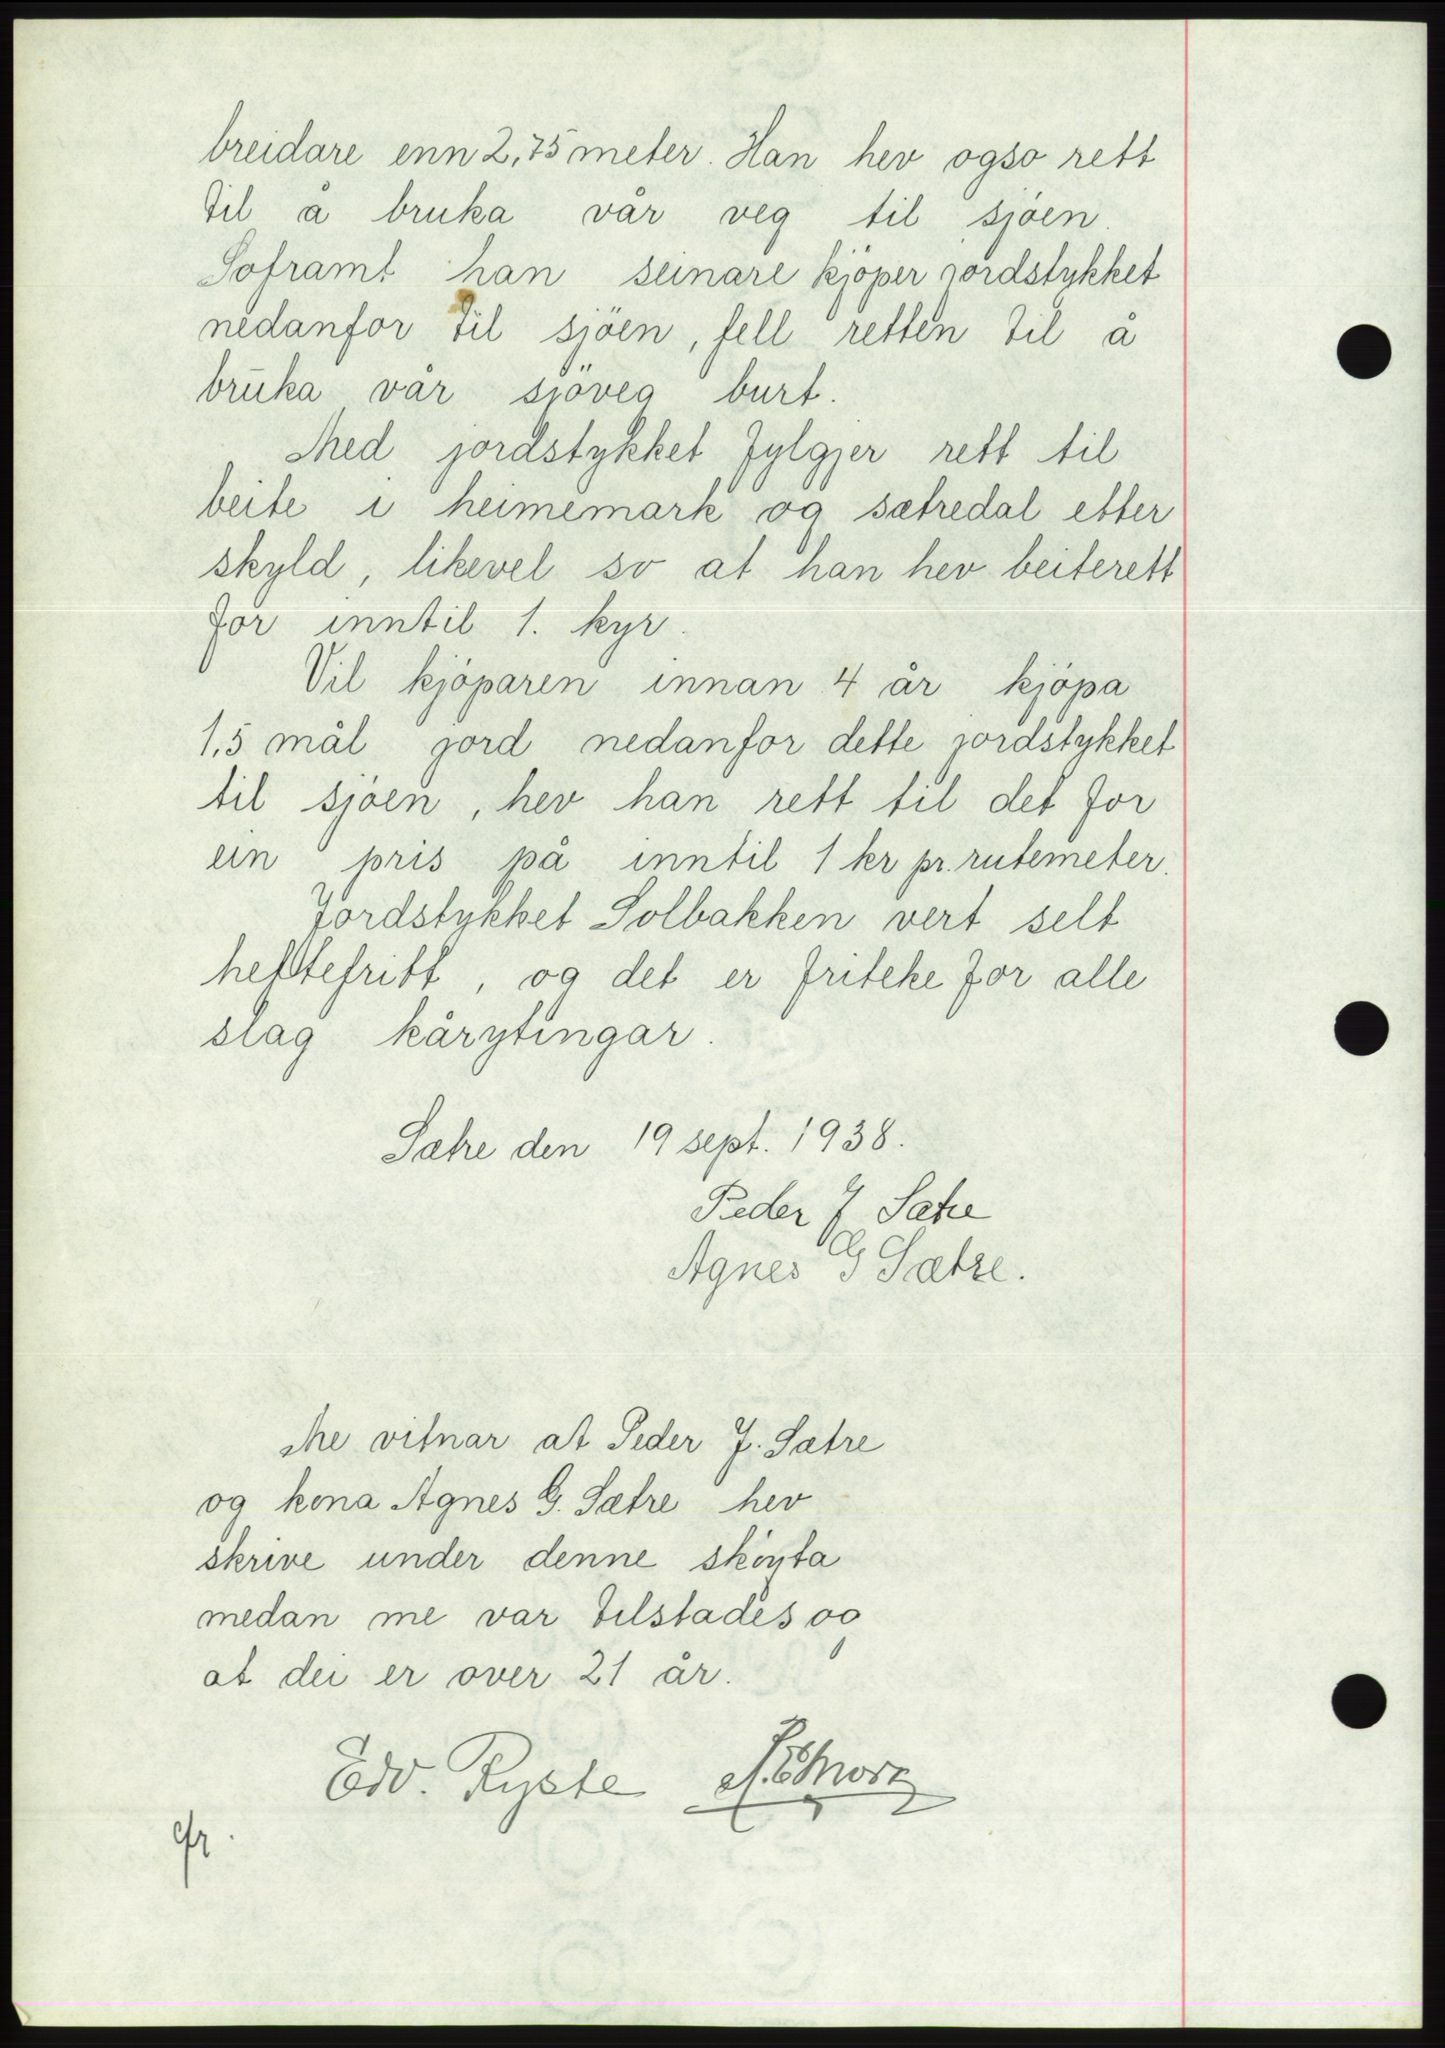 breidare enn 2,75 meter. Han hev ogso rett
til å bruka vår veg til sjöen.
Soframt han seinare kjöper jordstykket
nedanfor til sjöen, fell retten til å
bruka vår sjöveg burt.
Med jordstykket fylgjer rett til
beite i heimemark og sætredal etter
skyld, likevel so at han hev beiterett
for inntil 1. kyr.
Vil kjöparen innan 4 år kjöpa
1,5 mål jord nedanfor dette jordstykket
til sjöen, hev han rett til det for
ein pris på inntil 1 kr pr. rutemeter.
Jordstykket Solbakken vert selt
heftefritt, og det er friteke for alle
slag kårytingar.
Sætre den 19 sept. 1938.
Peder J Sætre
Agnes G Sætre.
Me vitnar at Peder J. Sætre
og kona Agnes G. Sætre hev
skrive under denne sköyta
medan me var tilstades og
at dei er over 21 år.
Edv. Ryste